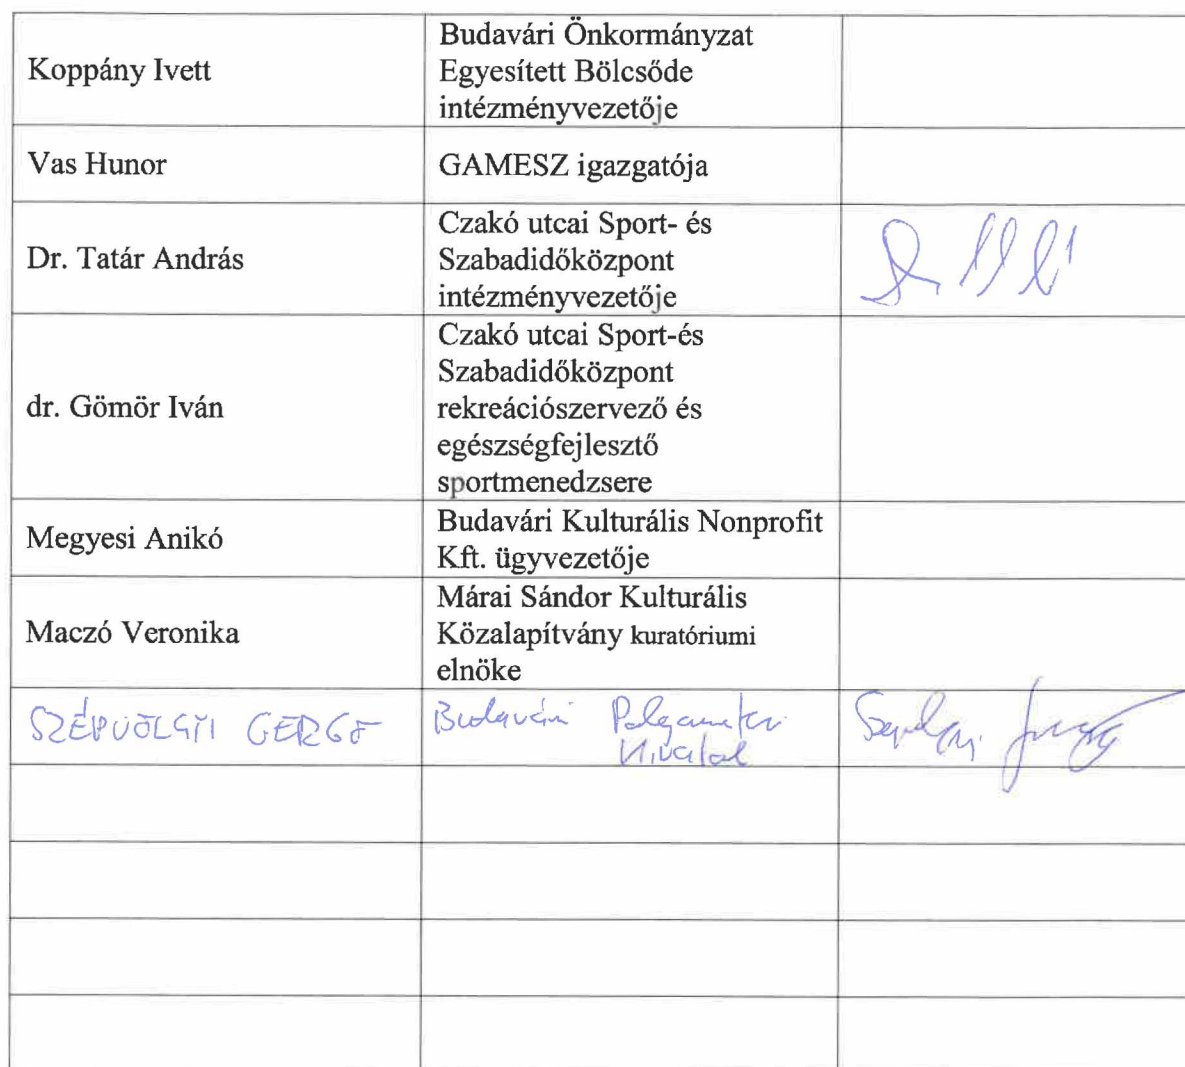 Koppány Ivett
Budavári Önkormányzat
Egyesített Bölcsőde
intézményvezetője
Vas Hunor
GAMESZ igazgatója
Dr. Tatár András
Czakó utcai Sport- és
Szabadidőközpont
intézményvezetője
dr. Gömör Iván
Czakó utcai Sport-és
Szabadidőközpont
rekreációszervező és
egészségfejlesztő
sportmenedzsere
Megyesi Anikó
Budavári Kulturális Nonprofit
Kft. ügyvezetője
Maczó Veronika
Márai Sándor Kulturális
Közalapítvány kuratóriumi
elnöke
SZÉPVÖLGYI GERGŐ
Budavári Polgármesteri
Hivatal